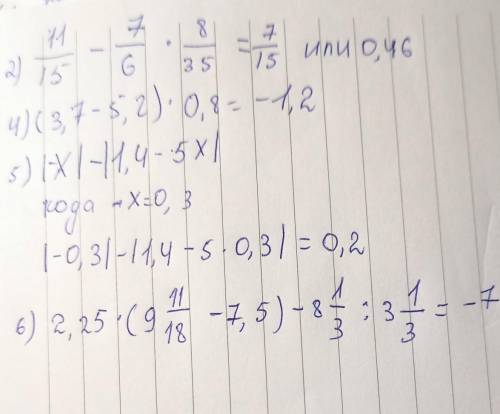 2) 11/15 - 7/6 · 8/35 = 7/15 или 0,46
4) (3,7-5,2) · 0,8 = -1,2
5) |-x|-|1,4-5x|
кода -x=0,3
|-0,3|-|1,4-5·0,3| = 0,2
6) 2,25·(9 11/18 -7,5)-8 1/3 : 3 1/3 = -7